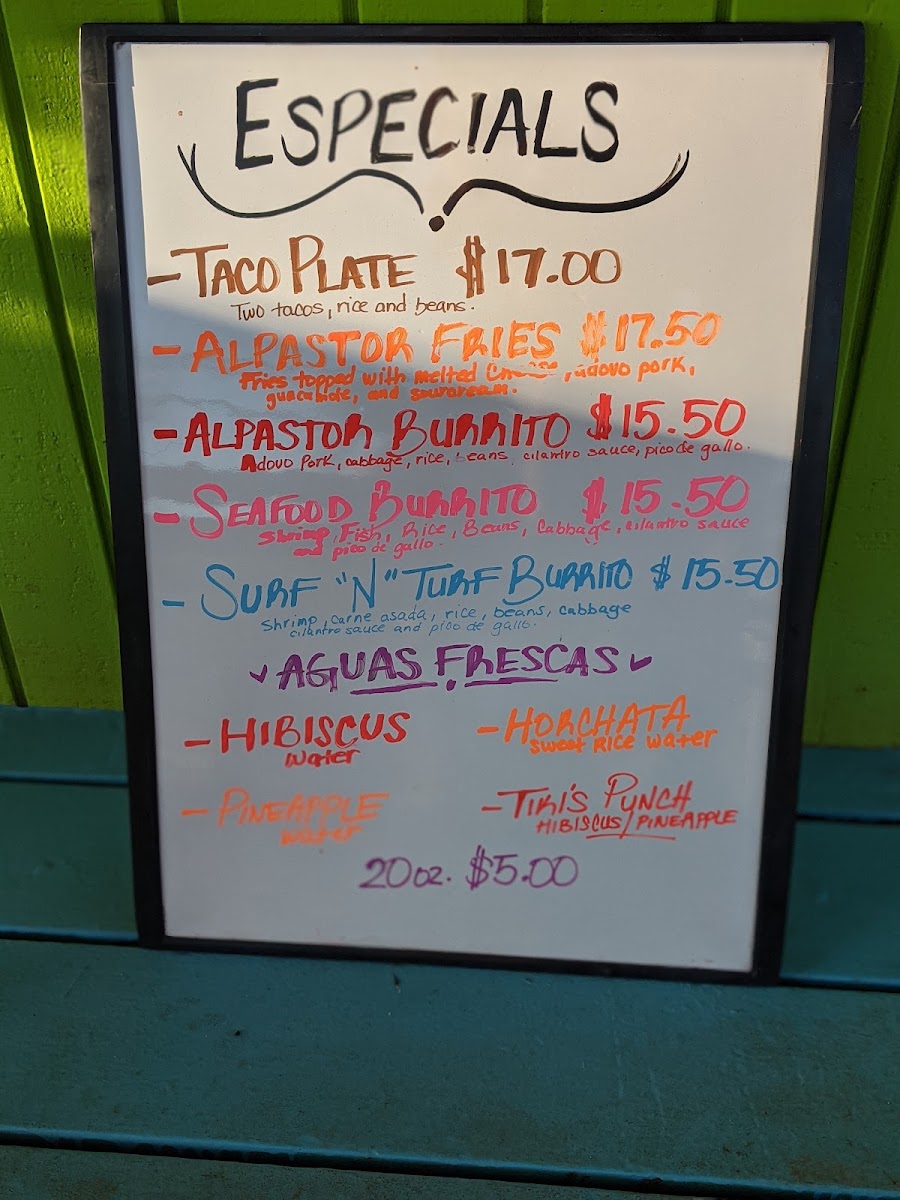 ESPECIALS
- TACO PLATE $17.00
Two tacos, rice and beans.
- ALPASTOR FRIES $17.50
Fries topped with melted cheese, adovo pork,
and sourcream.
- ALPASTOR BURRITO $15.50
Adovo Pork, cabbage, rice, beans, cilantro sauce, pico de gallo.
- SEAFOOD BURRITO $15.50
Shrimp, Fish, Rice, Beans, Cabbage, cilantro sauce
and pico de gallo.
- SURF "N" TURF BURRITO $15.50
Shrimp, carne asada, rice, beans, cabbage
cilantro sauce and pico de gallo.
AGUAS FRESCAS
- HIBISCUS
water
- HORCHATA
sweet Rice water
- PINEAPPLE
water
- TIKI'S PUNCH
HIBISCUS/PINEAPPLE
20oz. $5.00